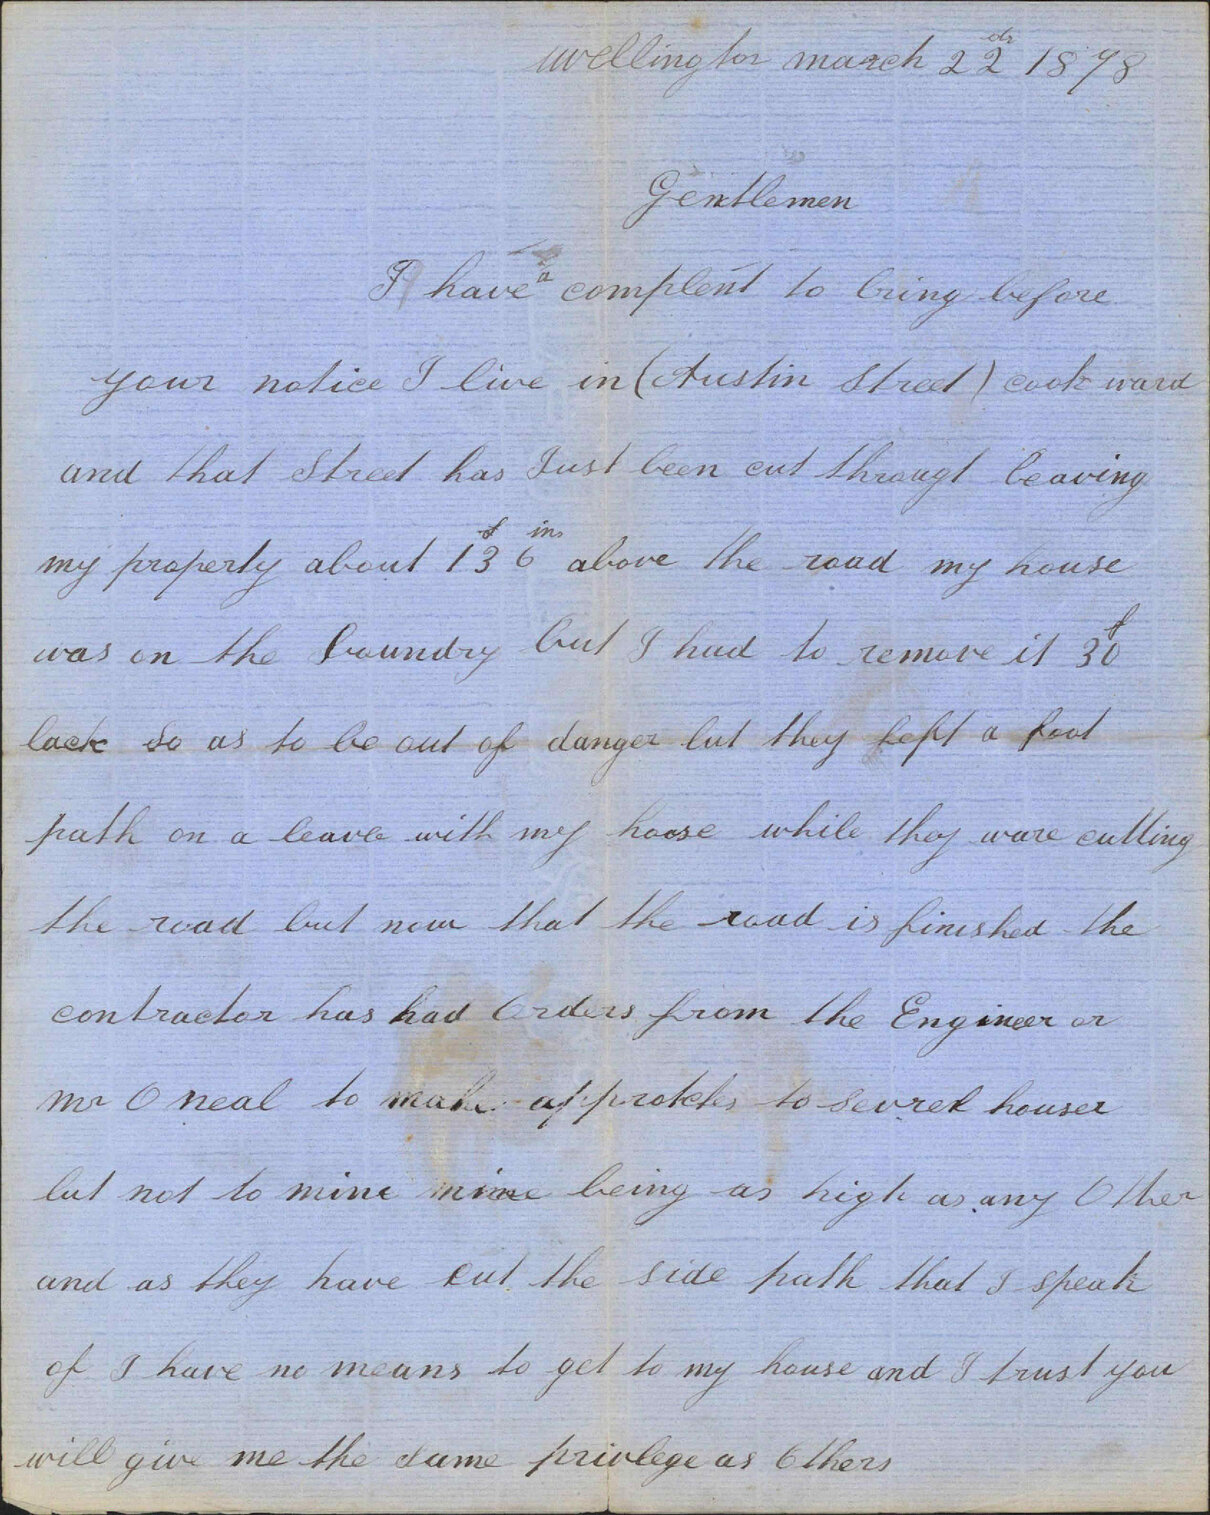 Wellington march 22dr 1878
Gentlemen
I have a complent to bring before
your notice I live in (Austin Street) cook ward
and that Street has Just been cut througt leaving
my property about 13f 6in above the road my house
was on the boundry but I had to remove it 30f
back so as to be out of danger but they left a foot
path on a leave with my hoose while they ware cutting
the road but now that the road is finished the
contractor has had Orders from the Engineer or
mr O neal to make approtches to sevrel houses
but not to mine mine being as high as any Other
and as they have cut the side path that I speak
of I have no means to get to my house and I trust you
will give me the same privlege as Others